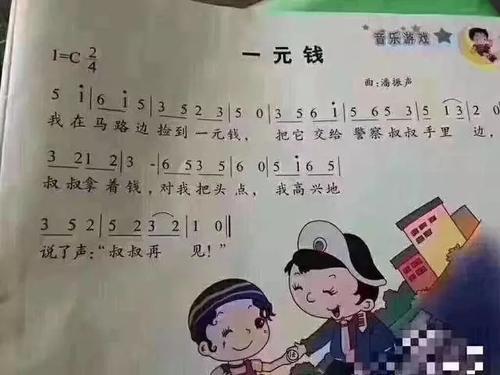 音乐游戏
一元钱
1=C 2/4
曲:潘振声
5 i | 6 i 5 | 3 5 2 3 | 5 0 | 3 5 6 i | 5 6 5 3 | 5 1 3 | 2 0 |
我在马路边捡到一元钱, 把它交给警察叔叔手里 边,
3 21 2 | 3 - | 6 5 3 5 | 6 0 | 5 i 6 5 |
叔叔拿着钱,对我把头点, 我高兴地
3 5 2 | 5 2 3 2 | 1 0 ||
说了声:“叔叔再 见!”